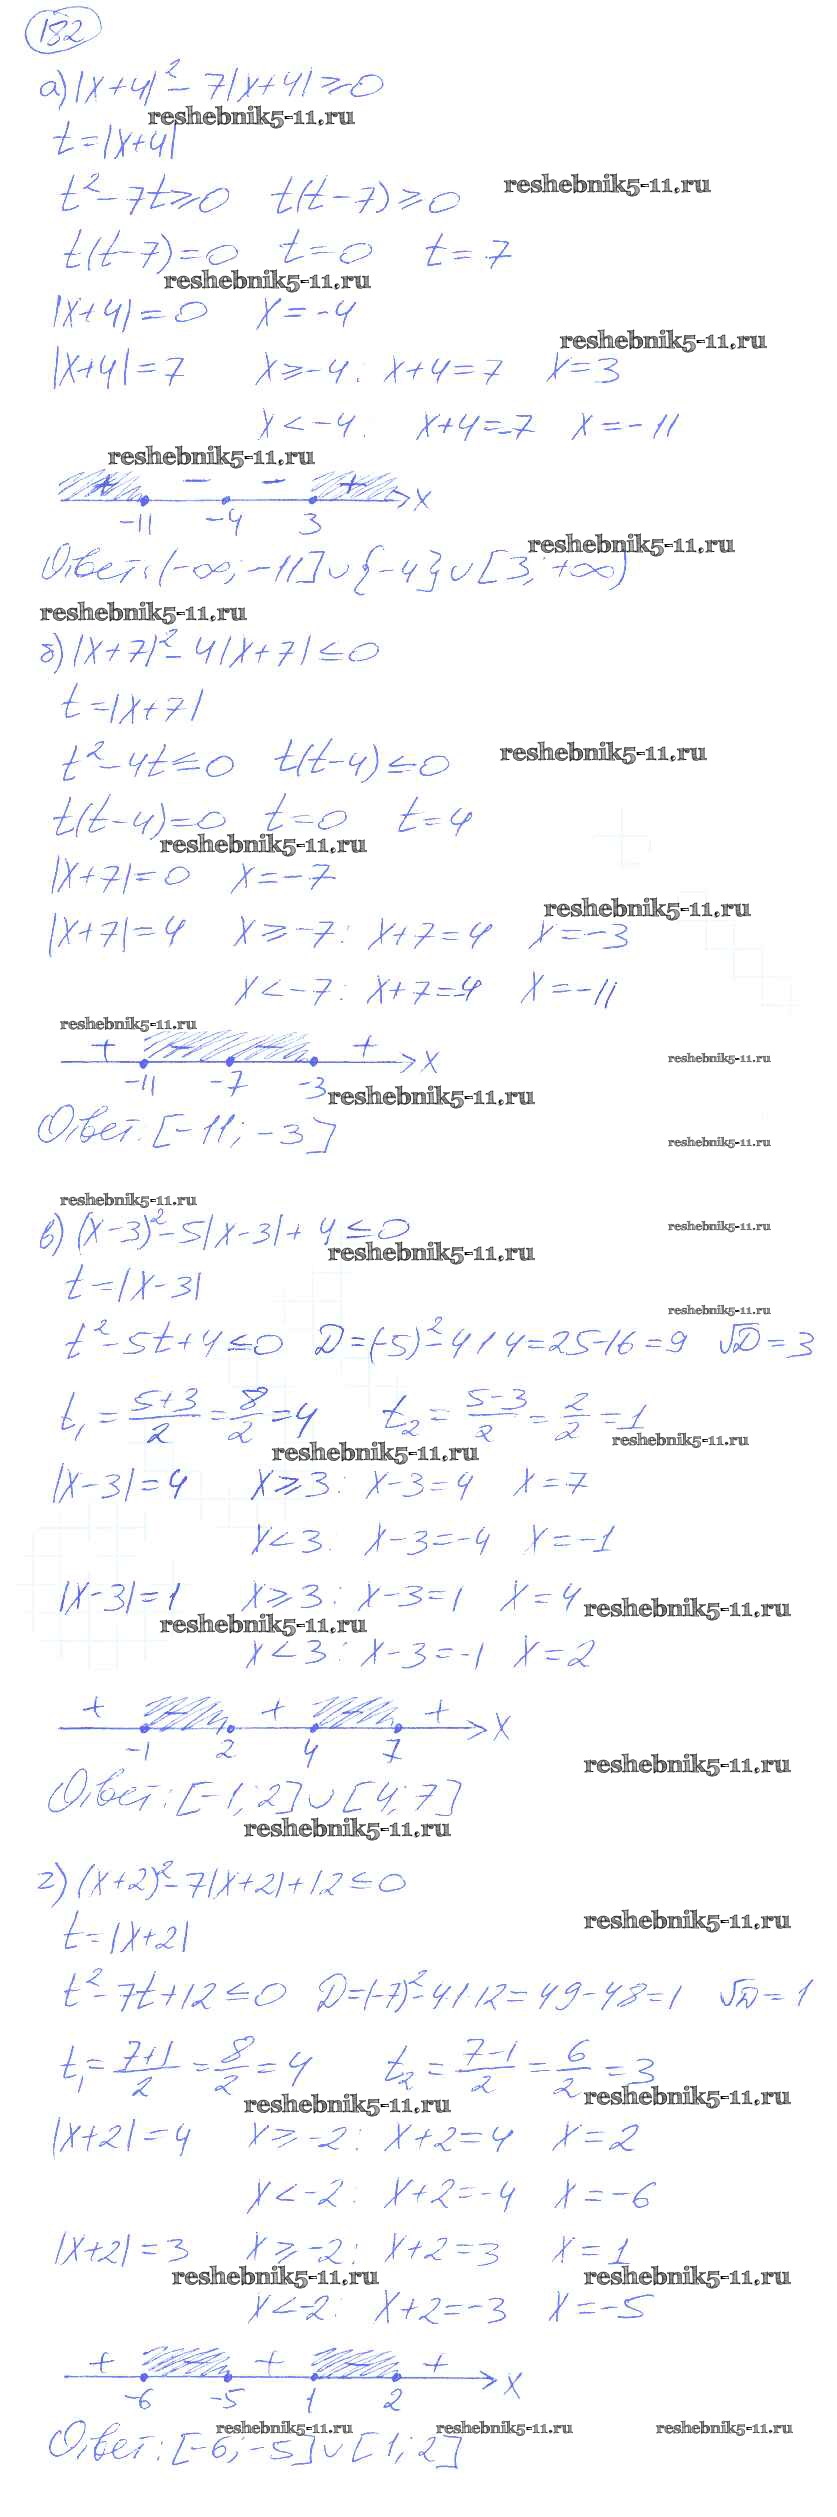 182
а) |x+4|² - 7|x+4| ≥ 0
reshebnik5-11.ru
t = |x+4|
t² - 7t ≥ 0 t(t-7) ≥ 0 reshebnik5-11.ru
t(t-7) = 0 t = 0 t = 7
reshebnik5-11.ru
|x+4| = 0 x = -4
reshebnik5-11.ru
|x+4| = 7 x ≥ -4: x+4 = 7 x = 3
x < -4: x+4 = -7 x = -11
reshebnik5-11.ru
+ - - + x
-11 -4 3
reshebnik5-11.ru
Ответ: (-∞; -11] ∪ {-4} ∪ [3; +∞)
reshebnik5-11.ru
б) |x+7|² - 4|x+7| ≤ 0
t = |x+7|
t² - 4t ≤ 0 t(t-4) ≤ 0 reshebnik5-11.ru
t(t-4) = 0 t = 0 t = 4
reshebnik5-11.ru
|x+7| = 0 x = -7
reshebnik5-11.ru
|x+7| = 4 x ≥ -7: x+7 = 4 x = -3
x < -7: x+7 = -4 x = -11
reshebnik5-11.ru
+ - - + x reshebnik5-11.ru
-11 -7 -3
reshebnik5-11.ru
Ответ: [-11; -3] reshebnik5-11.ru
reshebnik5-11.ru
в) (x-3)² - 5|x-3| + 4 ≤ 0 reshebnik5-11.ru
reshebnik5-11.ru
t = |x-3|
reshebnik5-11.ru
t² - 5t + 4 ≤ 0 D = (-5)² - 4·1·4 = 25 - 16 = 9 √D = 3
t₁ = (5+3)/2 = 8/2 = 4 t₂ = (5-3)/2 = 2/2 = 1
reshebnik5-11.ru
reshebnik5-11.ru
|x-3| = 4 x ≥ 3: x-3 = 4 x = 7
x < 3: x-3 = -4 x = -1
|x-3| = 1 x ≥ 3: x-3 = 1 x = 4 reshebnik5-11.ru
reshebnik5-11.ru
x < 3: x-3 = -1 x = 2
+ + + x
-1 2 4 7
reshebnik5-11.ru
Ответ: [-1; 2] ∪ [4; 7]
reshebnik5-11.ru
г) (x+2)² - 7|x+2| + 12 ≤ 0
reshebnik5-11.ru
t = |x+2|
t² - 7t + 12 ≤ 0 D = (-7)² - 4·1·12 = 49 - 48 = 1 √D = 1
t₁ = (7+1)/2 = 8/2 = 4 t₂ = (7-1)/2 = 6/2 = 3
reshebnik5-11.ru reshebnik5-11.ru
|x+2| = 4 x ≥ -2: x+2 = 4 x = 2
x < -2: x+2 = -4 x = -6
|x+2| = 3 x ≥ -2: x+2 = 3 x = 1
reshebnik5-11.ru reshebnik5-11.ru
x < -2: x+2 = -3 x = -5
+ + + x
-6 -5 1 2
reshebnik5-11.ru reshebnik5-11.ru reshebnik5-11.ru
Ответ: [-6; -5] ∪ [1; 2]